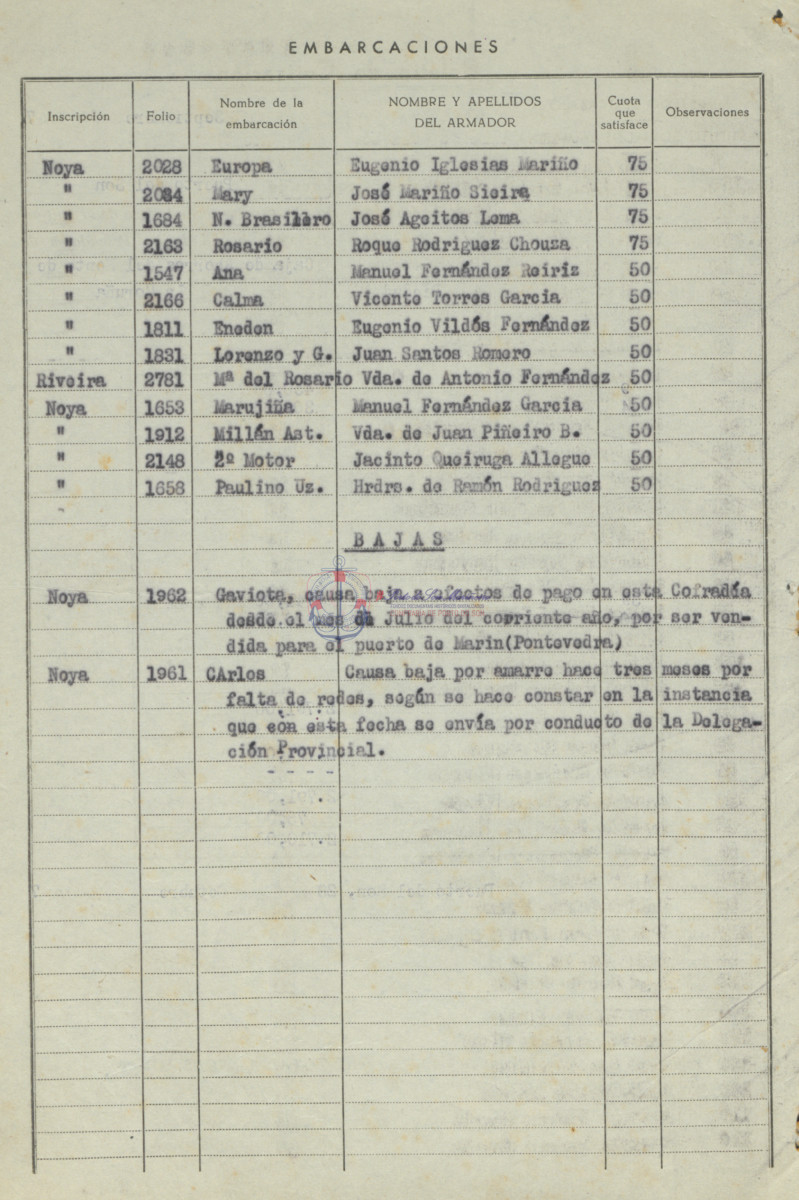 EMBARCACIONES
Inscripción Folio Nombre de la embarcación NOMBRE Y APELLIDOS DEL ARMADOR Cuota que satisface Observaciones
Noya 2028 Europa Eugenio Iglesias Mariño 75
" 2084 Mary José Mariño Sieira 75
" 1684 N. Brasilèro José Ageitos Lema 75
" 2163 Rosario Roque Rodriguez Chouza 75
" 1547 Ana Manuel Fernández Reiriz 50
" 2166 Calma Vicente Torres Garcia 50
" 1811 Eneden Eugenio Vildós Fernández 50
" 1831 Lorenzo y G. Juan Santos Romero 50
Riveira 2781 Mª del Rosario Vda. de Antonio Fernández 50
Noya 1653 Marujiña Manuel Fernández Garcia 50
" 1912 Millán Ast. Vda. de Juan Piñeiro B. 50
" 2148 2º Motor Jacinto Queiruga Allegue 50
" 1658 Paulino Uz. Hrdrs. de Ramón Rodriguez 50
BAJAS
Noya 1962 Gaviota, causa baja a efectos de pago en esta Cofradía
desde el mes de Julio del corriente año, por ser ven-
dida para el puerto de Marin(Pontevedra)
Noya 1961 CArlos Causa baja por amarre hace tres meses por
falta de redes, según se hace constar en la instancia
que con esta fecha se envía por conducto de la Delega-
ción Provincial.
- - - -